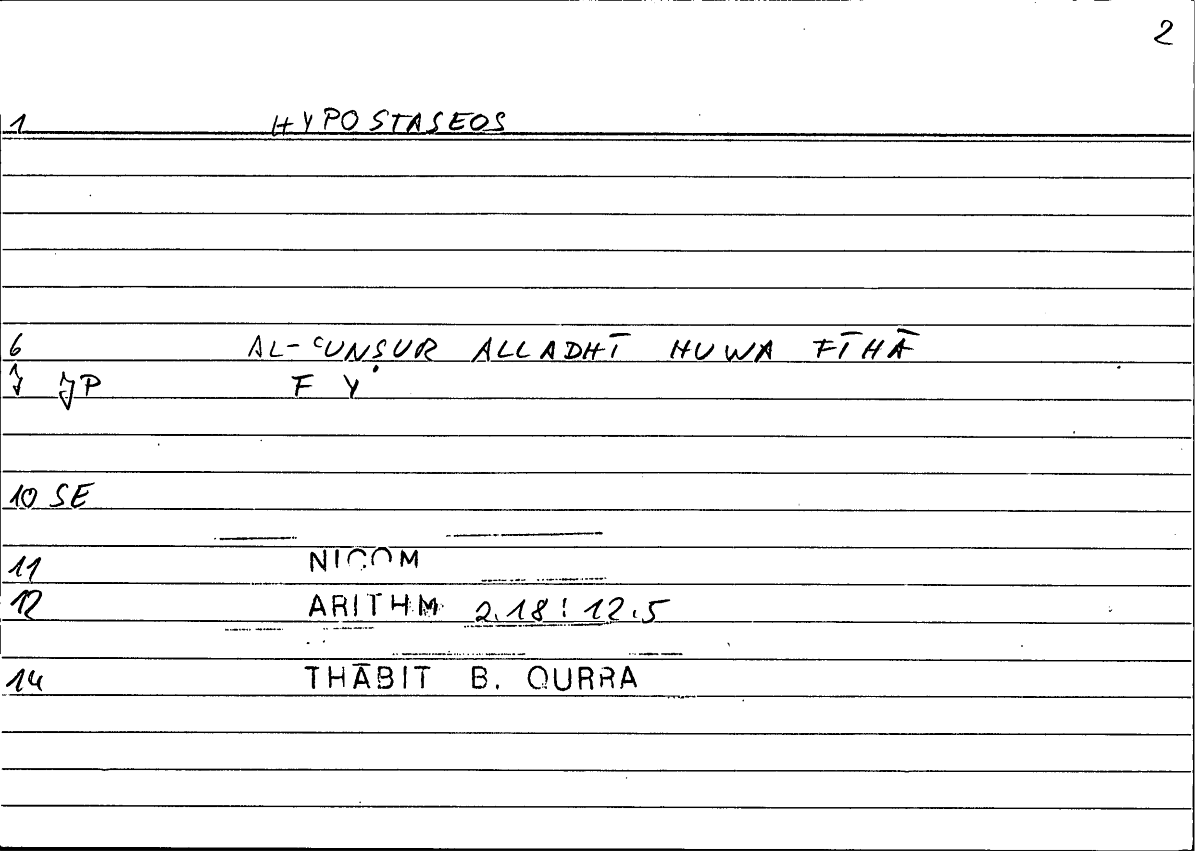 2
1 HYPOSTASEOS
6 AL-ʿUNṢUR ALLADHĪ HUWA FĪHĀ
JP F Y
10 SE
11 NICOM
12 ARITHM 2.18:12.5
14 THĀBIT B. QURRA